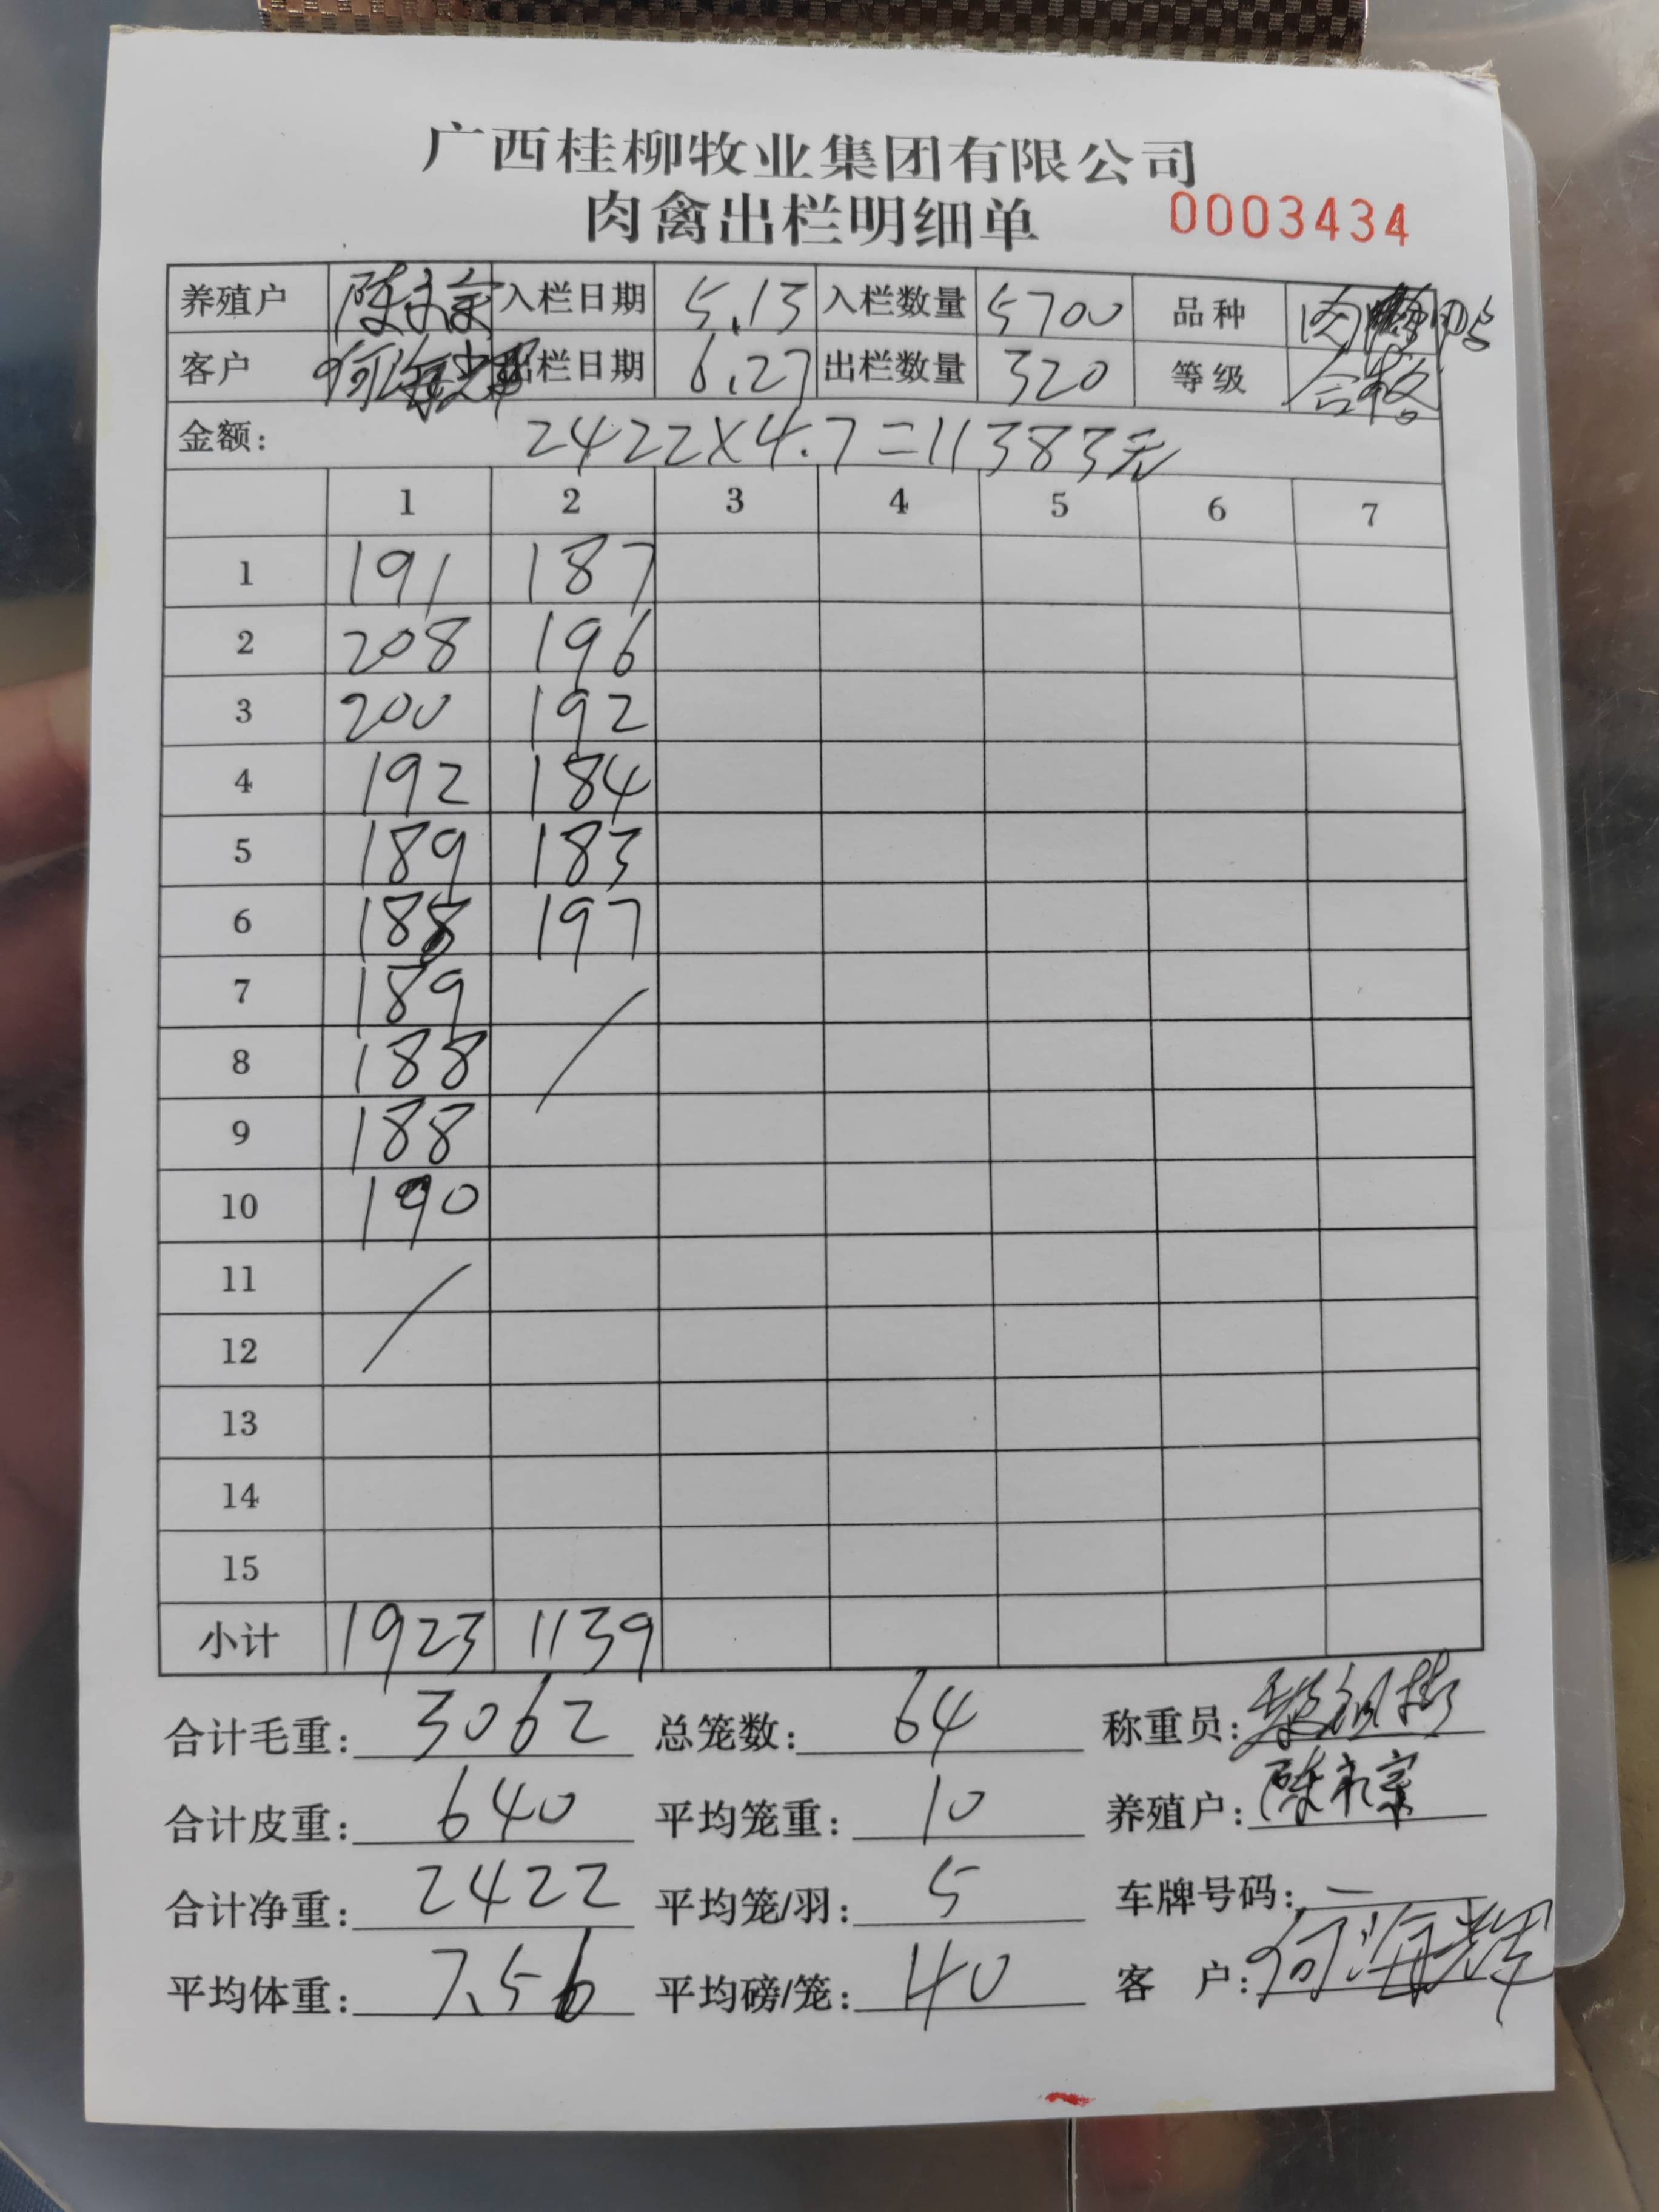 广西桂柳牧业集团有限公司
肉禽出栏明细单 0003434
养殖户 陈永宗 入栏日期 5.13 入栏数量 5700 品种 肉鸭
客户 何海辉 出栏日期 6.27 出栏数量 320 等级 合格
金额: 2422×4.7=11383元
1 2 3 4 5 6 7
1 191 187
2 208 196
3 200 192
4 192 184
5 189 183
6 188 197
7 189
8 188
9 188
10 190
11
12
13
14
15
小计 1923 1139
合计毛重: 3062 总笼数: 64 称重员:
合计皮重: 640 平均笼重: 10 养殖户: 陈永宗
合计净重: 2422 平均笼/羽: 5 车牌号码: —
平均体重: 7.56 平均磅/笼: 40 客 户: 何海辉